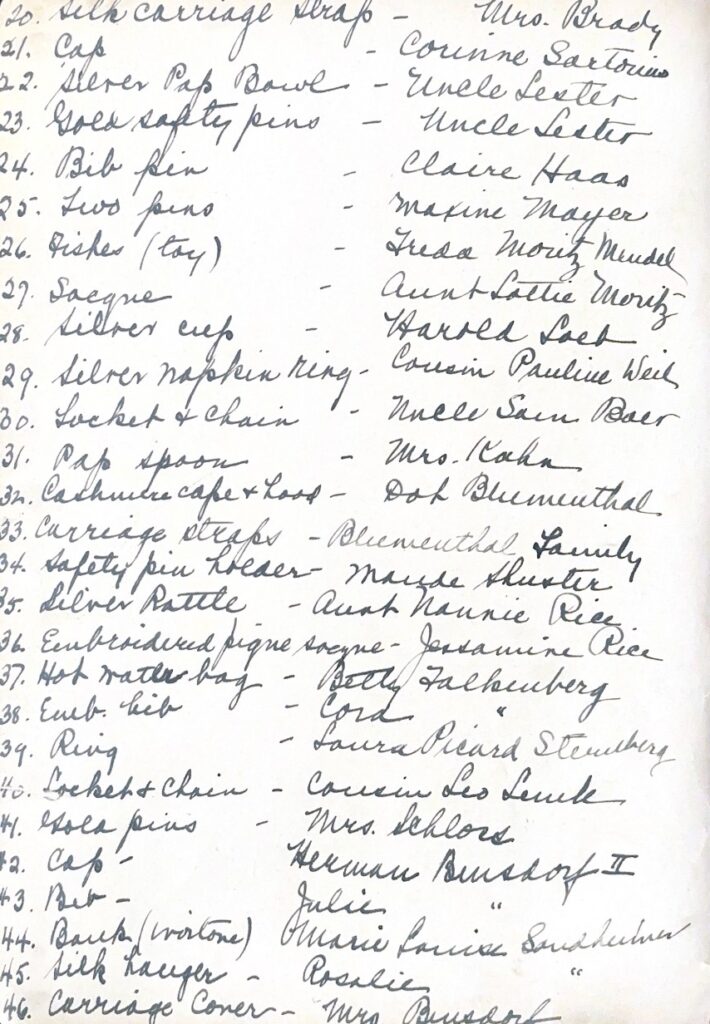 20. Silk carriage strap - Mrs. Brady
21. Cap - Corinne Sartorius
22. Silver Pap Bowl - Uncle Lester
23. Gold safty pins - Uncle Lester
24. Bib pin - Claire Haas
25. Two pins - Maxine Mayer
26. Fishes (toy) - Freda Moritz Mendel
27. Sacque - Aunt Lottie Moritz
28. Silver cup - Harold Loeb
29. Silver napkin ring - Cousin Pauline Weil
30. Locket & Chain - Uncle Sam Baer
31. Pap spoon - Mrs. Kahn
32. Cashmere cape & hood - Dot Blumenthal
33. Carriage straps - Blumenthal Family
34. Safety pin holder - Maude Shuster
35. Silver Rattle - Aunt Nannie Rice
36. Embroidered pique sacque - Jessamine Rice
37. Hot water bag - Betty Falkenberg
38. Emb. bib - Cora "
39. Ring - Laura Picard Sternberg
40. Locket & Chain - Cousin Leo Lenk
41. Gold pins - Mrs. Schloss
42. Cap - Herman Bensdorf II
43. Bib - Julie "
44. Bank (ivortone) Marie Louise Sondheimer
45. Silk hanger - Rosalie "
46. Carriage Cover - Mrs Bensdorf